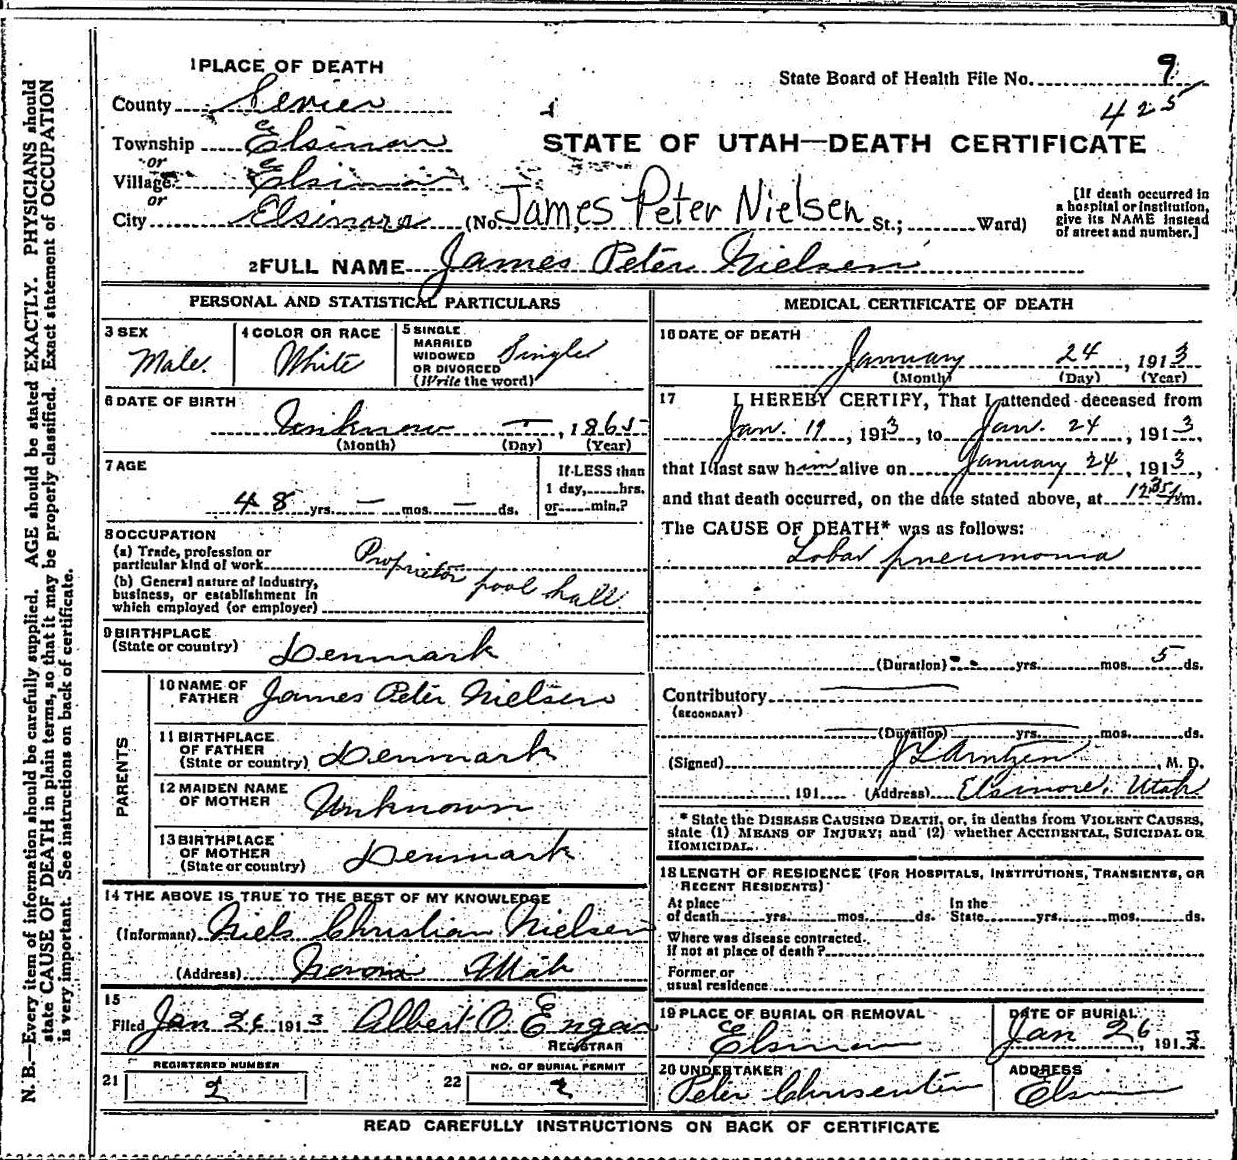 1 PLACE OF DEATH
State Board of Health File No. 9
425
County Sevier
Township Elsinore
STATE OF UTAH—DEATH CERTIFICATE
or
Village Elsinore
or
City Elsinore (No. James Peter Nielsen St.; Ward)
[If death occurred in
a hospital or institution,
give its NAME instead
of street and number.]
2 FULL NAME James Peter Nielsen
PERSONAL AND STATISTICAL PARTICULARS
3 SEX
Male
4 COLOR OR RACE
White
5 SINGLE
MARRIED
WIDOWED
OR DIVORCED
(Write the word)
Single
6 DATE OF BIRTH
Unknow — , 1865
(Month) (Day) (Year)
7 AGE
48 yrs. — mos. — ds.
If LESS than
1 day, hrs.
or min.?
8 OCCUPATION
(a) Trade, profession or
particular kind of work
(b) General nature of industry,
business, or establishment in
which employed (or employer)
Proprietor pool hall
9 BIRTHPLACE
(State or country) Denmark
PARENTS
10 NAME OF
FATHER James Peter Nielsen
11 BIRTHPLACE
OF FATHER
(State or country) Denmark
12 MAIDEN NAME
OF MOTHER Unknown
13 BIRTHPLACE
OF MOTHER
(State or country) Denmark
14 THE ABOVE IS TRUE TO THE BEST OF MY KNOWLEDGE
(Informant) Niels Christian Nielsen
(Address) Utah
15
Filed Jan 26 1913 Albert O
REGISTRAR
REGISTERED NUMBER
21 2
NO. OF BURIAL PERMIT
22 2
MEDICAL CERTIFICATE OF DEATH
16 DATE OF DEATH
January 24 , 1913
(Month) (Day) (Year)
17 I HEREBY CERTIFY, That I attended deceased from
Jan. 19 , 1913, to Jan. 24 , 1913,
that I last saw him alive on January 24 , 1913,
and that death occurred, on the date stated above, at 1235 m.
The CAUSE OF DEATH* was as follows:
Lobar pneumonia
(Duration) yrs. mos. 5 ds.
Contributory
(SECONDARY)
(Duration) yrs. mos. ds.
(Signed) , M. D.
191 (Address) Elsinore, Utah
* State the DISEASE CAUSING DEATH, or, in deaths from VIOLENT CAUSES,
state (1) MEANS OF INJURY; and (2) whether ACCIDENTAL, SUICIDAL OR
HOMICIDAL.
18 LENGTH OF RESIDENCE (FOR HOSPITALS, INSTITUTIONS, TRANSIENTS, OR
RECENT RESIDENTS)
At place
of death yrs. mos. ds.
In the
State yrs. mos. ds.
Where was disease contracted.
If not at place of death?
Former or
usual residence
19 PLACE OF BURIAL OR REMOVAL
Elsinore
DATE OF BURIAL
Jan 26 , 1913
20 UNDERTAKER
Peter
ADDRESS
Elsinore
READ CAREFULLY INSTRUCTIONS ON BACK OF CERTIFICATE
N. B.—Every item of information should be carefully supplied. AGE should be stated EXACTLY. PHYSICIANS should
state CAUSE OF DEATH in plain terms, so that it may be properly classified. Exact statement of OCCUPATION
is very important. See instructions on back of certificate.